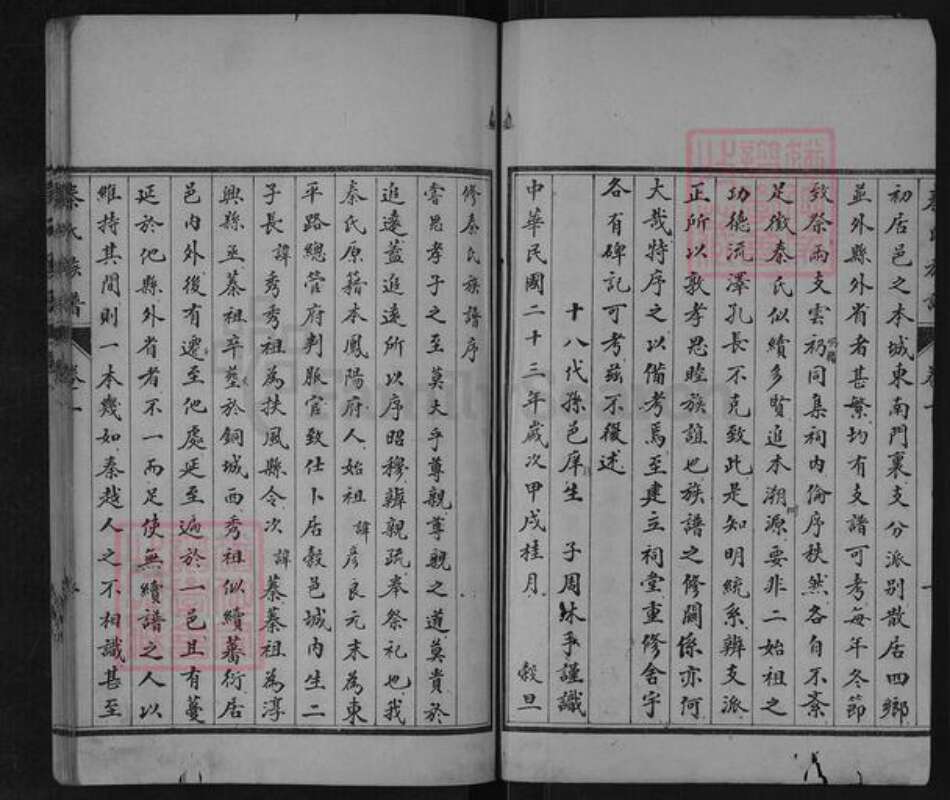 初居邑之本城東南門裏支分派别散居四鄉
並外縣外省者甚繁均有支譜可考每年冬節
致祭兩支雲礽同集祠内倫序秩然各自不紊
足徵秦氏似續多賢追本溯源要非二始祖之
功德流澤孔長不克致此是知明統系辨支派
正所以敦孝思睦族誼也族譜之修關係亦何
大哉特序之以備考焉至建立祠堂重修舍宇
各有碑記可考茲不復述
十八代孫邑庠生 子周沐手謹識
中華民國二十三年歲次甲戌桂月 穀旦
修秦氏族譜序
嘗思孝子之至莫大乎尊親尊親之道莫貴於
追遠蓋追遠所以序昭穆辨親疏奉祭祀也我
秦氏原籍本鳳陽府人始祖諱彦良元末為東
平路總管府判服官致仕卜居穀邑城内生二
子長諱秀秀祖為扶風縣令次諱蓁蓁祖為淳
興縣丞蓁祖卒塟於銅城西秀祖似續蕃衍居
邑内外後有遷至他處延至遍於一邑且有蔓
延於他縣外省者不一而足使無續譜之人以
維持其間則一本幾如秦越人之不相識甚至
秦氏族譜 卷一